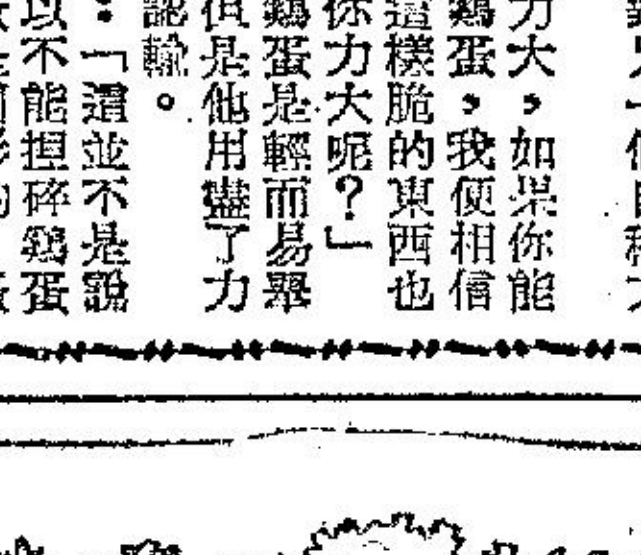 力大,如果你能
鷄蛋,我便相信
這樣脆的東西也
你力大呢?」
鷄蛋是輕而易舉
但是他用盡了力
認輸。
:「這並不是說
以不能捏碎鷄蛋